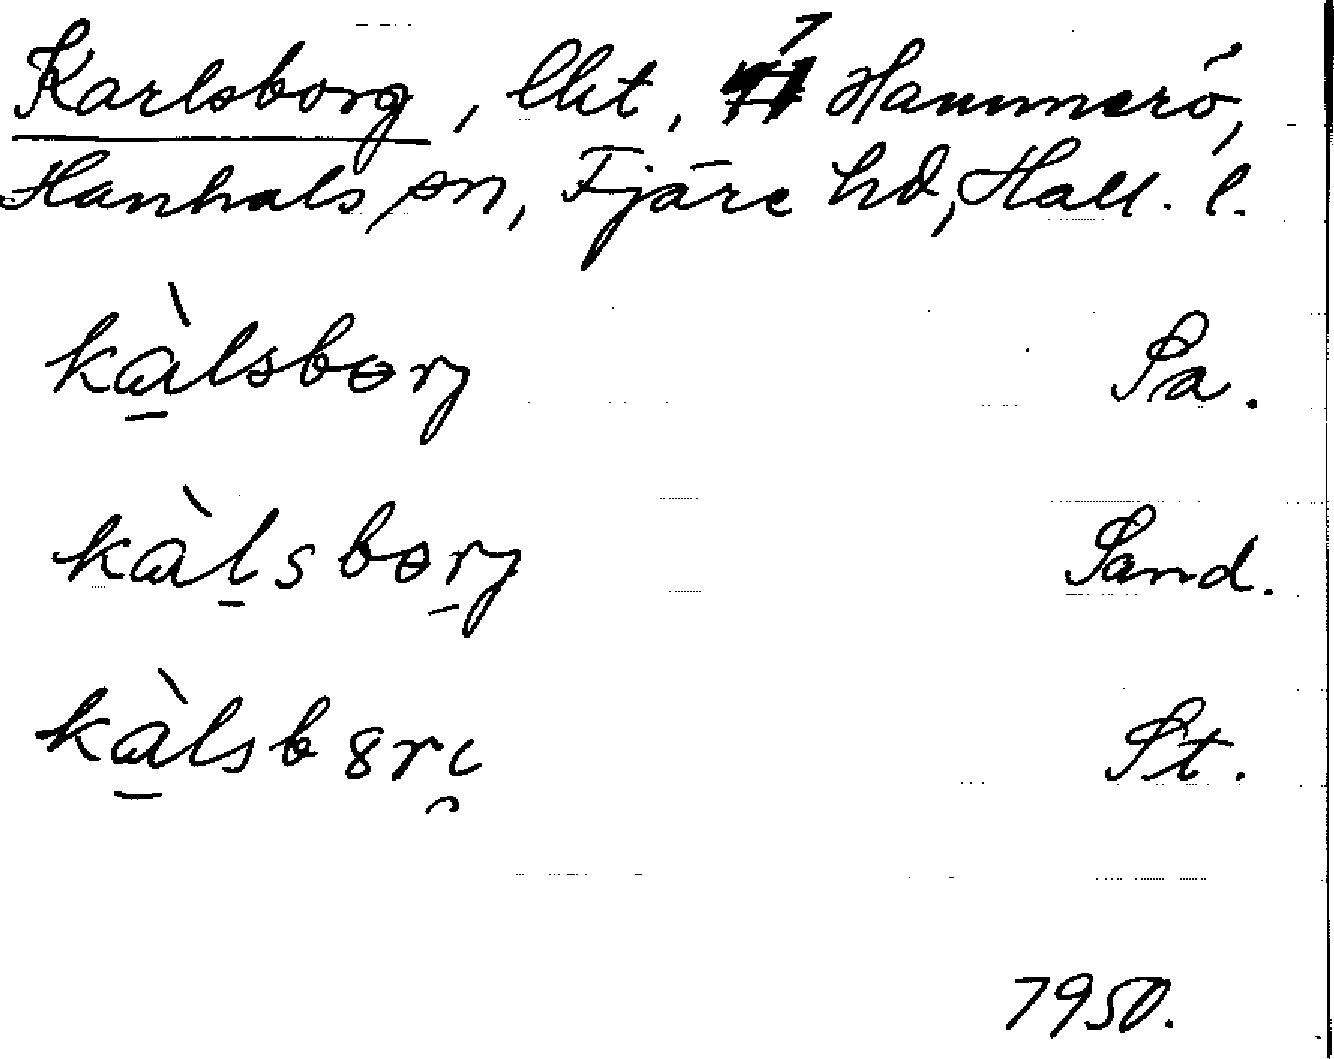 Karlsborg, lht, 7 Hammerö,
Hanhals sn, Fjäre hd, Hall. l.
kàlsbɵrj Sa.
kàl̠sbɵrj Sand.
kàlsb8rc̯ St.
1950.